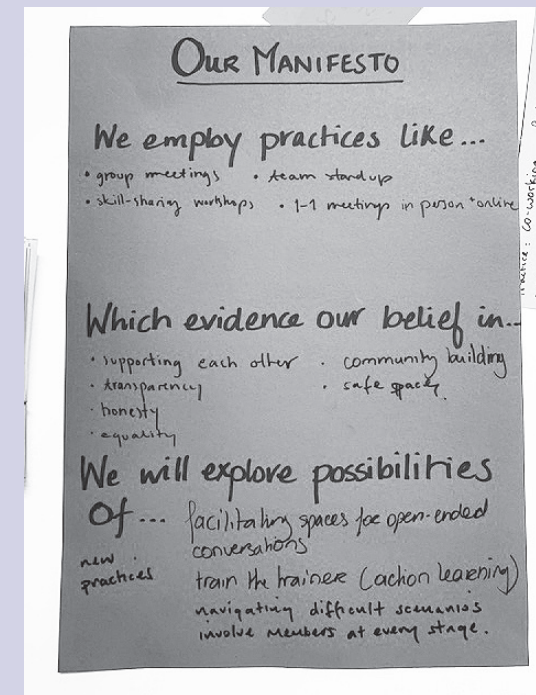 OUR MANIFESTO
We employ practices like...
• group meetings • team standup
• skill-sharing workshops • 1-1 meetings in person + online
Which evidence our belief in...
• supporting each other • community building
• transparency • safe space
• honesty
• equality
We will explore possibilities
Of... facilitating spaces for open-ended
conversations
new practices
train the trainers (action learning)
navigating difficult scenarios
involve members at every stage.
Practice: Co-working